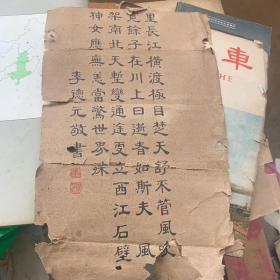 里長江橫渡極目楚天舒不管風吹
寬餘子在川上曰逝者如斯夫 風
架南北天塹變通途更立西江石壁
神女應無恙當驚世界殊
李德元敬書
車
HE